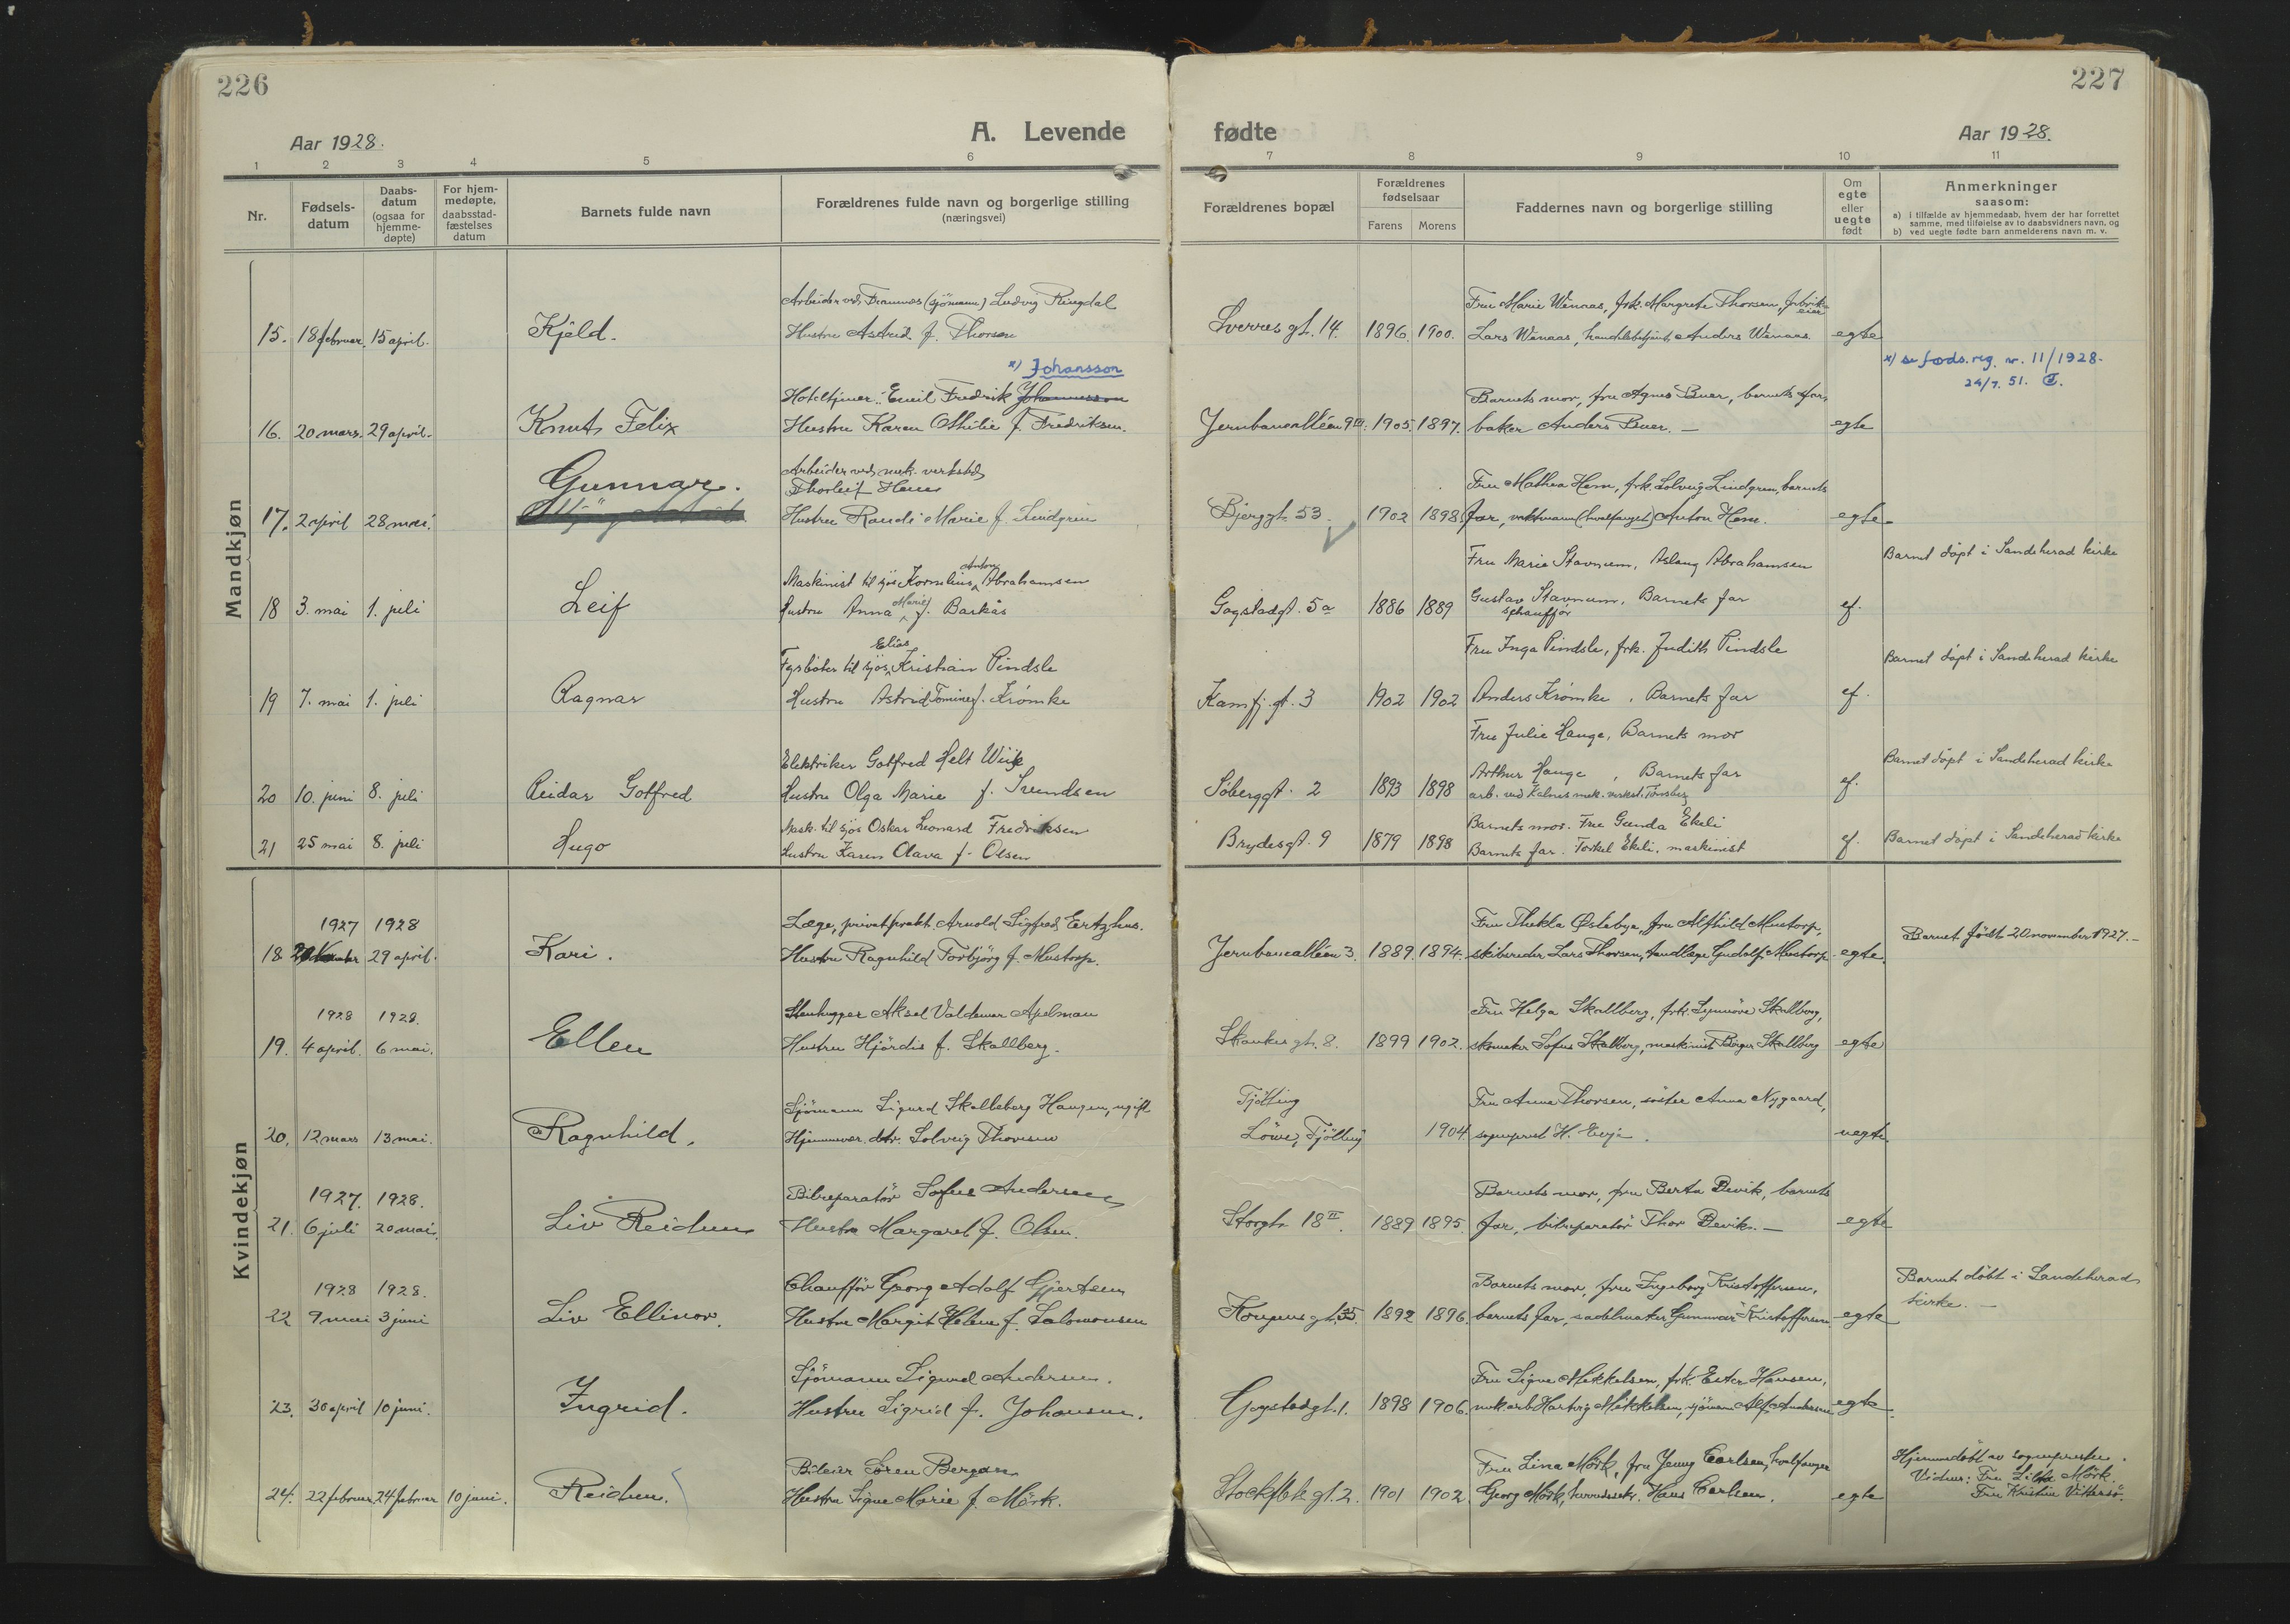 226
227
Aar 1928.
A. Levende
fødte
Aar 1928.
1 2 3 4 5 6 7 8 9 10 11
Nr.
Fødsels-
datum
Daabs-
datum
(ogsaa for
hjemme-
døpte)
For hjem-
medøpte,
daabsstad-
fæstelses
datum
Barnets fulde navn
Forældrenes fulde navn og borgerlige stilling
(næringsvei)
Forældrenes bopæl
Forældrenes
fødselsaar
Farens Morens
Faddernes navn og borgerlige stilling
Om
egte
eller
uegte
født
Anmerkninger
saasom:
a) i tilfælde av hjemmedaab, hvem der har forrettet
samme, med tilføielse av to daabsvidners navn, og
b) ved uegte fødte barn anmelderens navn m. v.
Mandkjøn
Arbeider ved Framnæs (sjömann) Ludvig Ringdal
Fru Marie Winaas, frk. Margrete Thorsen, fabrik-
eier
15. 18 februar. 15 april. Kjeld. Hustru Astrid f. Thorsen Sverres gt. 14. 1896. 1900. Lars Winaas, handelsbetjent Anders Winaas egte
x) Johansson
x) se føds.reg. nr. 11/1928.
24/7. 51.
Hoteltjener Emil Fredrik Johannessen
Barnets mor, fru Agnes Buer, barnets far,
16. 20 mars. 29 april. Knut Felix Hustru Karen Othilie f. Fredriksen. Jernbanealléen 9 III. 1905. 1897. baker Anders Buer. — egte
Gunnar.
Arbeider ved mek. verksted
Thorleif Hem
Fru Mathea Hem, frk. Solveig Lindgren, barnets
17. 2 april 28 mai. Hustru Randi Marie f. Lindgren Bjerggt. 53. 1902 1898 far, vaktmann (hvalfangst) Anton Hem. egte
Barnet döpt i Sandeherad kirke
Anton
Maskinist til sjös Kornelius Abrahamsen
Fru Marie Stavnum, Aslaug Abrahamsen
18 3. mai 1. juli Leif Hustru Anna Marie f. Barkås Gogstadgt. 5a 1886 1889 Gustav Stavnum, Barnets far ef.
schauffør
Elias
Fyrböter til sjös Kristian Pindsle
Fru Inga Pindsle, frk. Judith Pindsle
Barnet döpt i Sandeherad kirke
19 7. mai 1. juli Ragnar Hustru Astrid Tomine f. Krömke Kamfj. gt. 3 1902 1902 Anders Krömke, Barnets far ef.
Fru Julie Hauge, Barnets mor
Elektriker Gotfred Helt Wiik
Barnet döpt i Sandeherad kirke
20 10. juni 8. juli Reidar Gotfred Hustru Olga Marie f. Svendsen Söberggt. 2 1893 1898 Arthur Hauge, Barnets far ef.
arb. ved Kalnes mek. verkst. Tønsberg
Mask. til sjös Oskar Leonard Fredriksen
Barnets mor. Fru Gunda Ekeli
21 25 mai 8. juli Hugo Hustru Karen Olava f. Olsen Brydesgt. 9 1879 1898 Barnets far. Torkel Ekeli. maskinist ef. Barnet döpt i Sandeherad kirke
Kvindekjøn
1927 1928
Læge, privatprakt. Arnold Sigfred Ertzhus.
Fru Thekla Østebye, fru Alfhild Mustorp,
Barnet født 20 november 1927.
18 29 april. Kari. Hustru Ragnhild Torbjörg f. Mustorp. Jernbanealléen 3. 1889. 1894. skibsreder Lars Thorsen, tandlæge Gudolf Mustorp. egte.
1928 1928.
Stenhugger Aksel Valdemar Apelman
Fru Helga Skallberg, frk. Synnöve Skallberg,
19. 4 april. 6 mai. Ellen Hustru Hjördis f. Skallberg. Skaukes gt. 8. 1899 1902. skomaker Sofus Skallberg, maskinist Birger Skallberg egte
Sjömann Sigurd Skalleberg Haugen, ugift
Tjölling
Fru Anna Thorsen, søster Anna Nygaard,
20. 12 mars 13 mai. Ragnhild. Hjemmevær. dtr. Solveig Thorsen Löwe, Tjölling 1904 sogneprest H. Evje. uegte
1927. 1928.
Bilreparatör Sofus Andersen
Barnets mor, fru Berta Bevik, barnets
21. 6 juli 20 mai. Liv Reidun Hustru Margaret f. Olsen. Storgt. 18 II. 1889 1895. far, bilreparatör Thor Bevik. — egte
1928 1928.
Chauffør Georg Adolf Gjertsen
Barnets mor, fru Ingeborg Kristoffersen,
Barnet döbt i Sandeherad
kirke. —
22 9 mai 3 juni Liv Ellinor. Hustru Margit Helene f. Salomonsen Kongens gt. 35. 1892 1896. barnets far, sadelmaker Gunnvar Kristoffersen. egte
Sjömann Sigurd Andersen.
Fru Signe Mikkelsen, frk. Ester Hansen,
23. 30 april 10 juni. Ingrid. Hustru Sigrid f. Johansen. Gogstadgt. 1. 1898 1906. mek. arb. Hartvig Mikkelsen, sjömann Alf Andersen egte.
Bileier Sören Bergan
Fru Lina Mörk, fru Jenny Carlsen, hvalfanger
Hjemmedöbt av sognepresten.
Vidner: Fru Lilla Mörk.
Fru Kristine Vittersö.
24. 22 februar 24 februar 10 juni. Reidun. Hustru Signe Marie f. Mörk. Stockflets gt. 2. 1901 1902. Georg Mörk, Hans Carlsen. egte